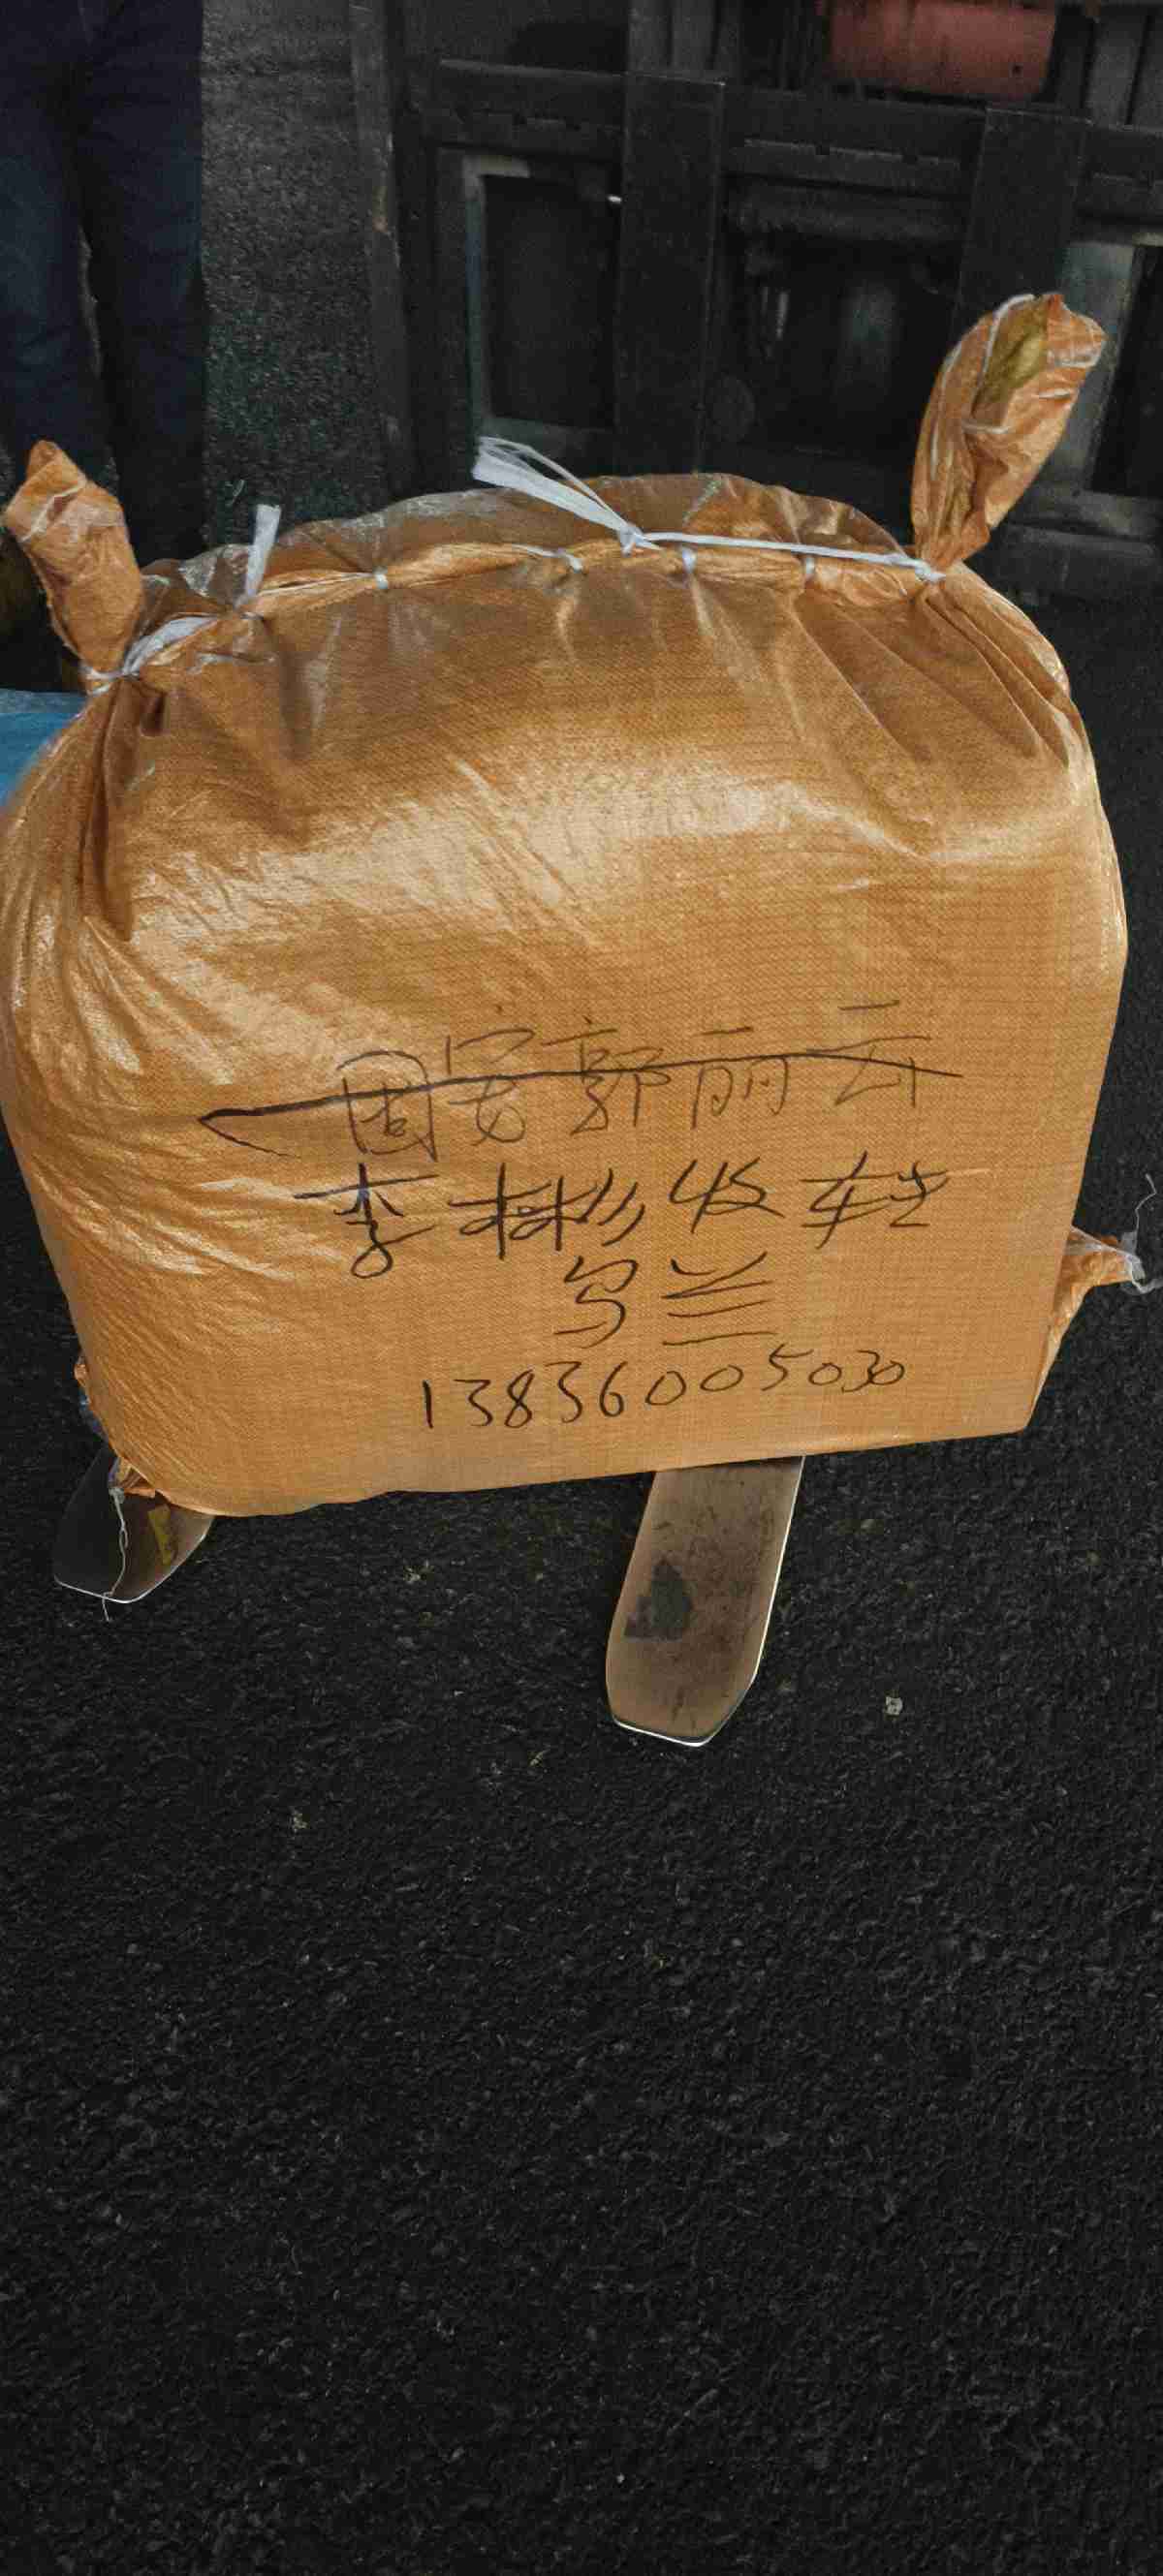 固安郭丽云
李彬收转
乌兰
13836005030